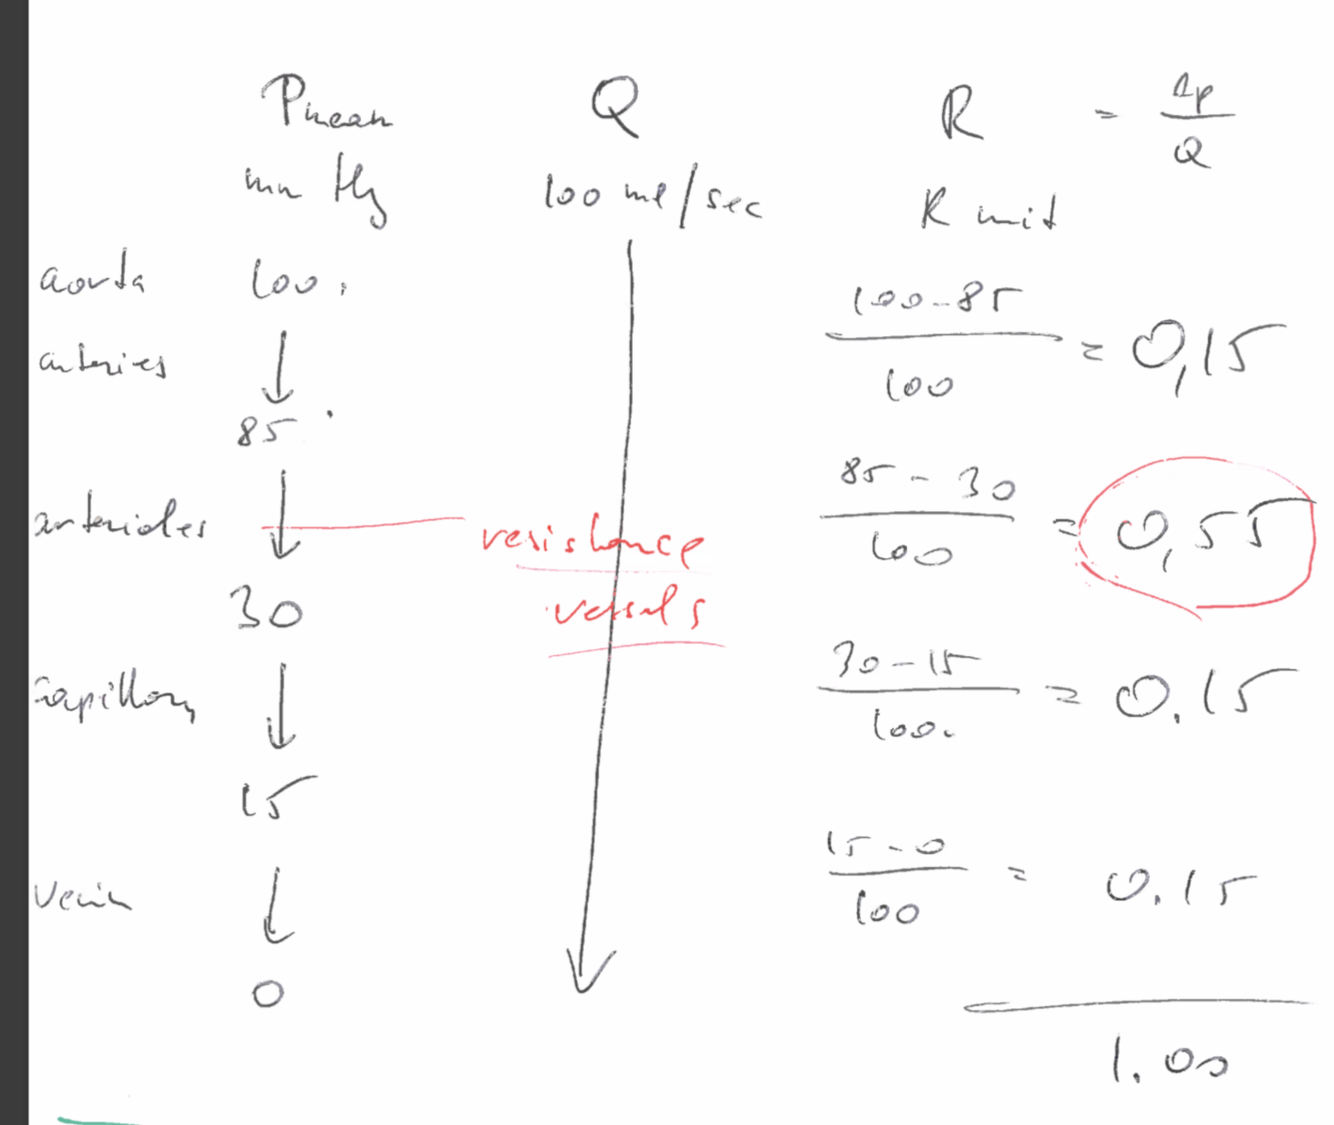 Pmean Q R = Δp / Q
mm Hg 100 ml/sec R unit
aorta 100.
100-85 / 100 = 0,15
arteries
85
85 - 30 / 100 = 0,55
arterioles resistance
vessels
30
30-15 / 100. = 0.15
capillary
15
15-0 / 100 = 0.15
vein
0
1.00